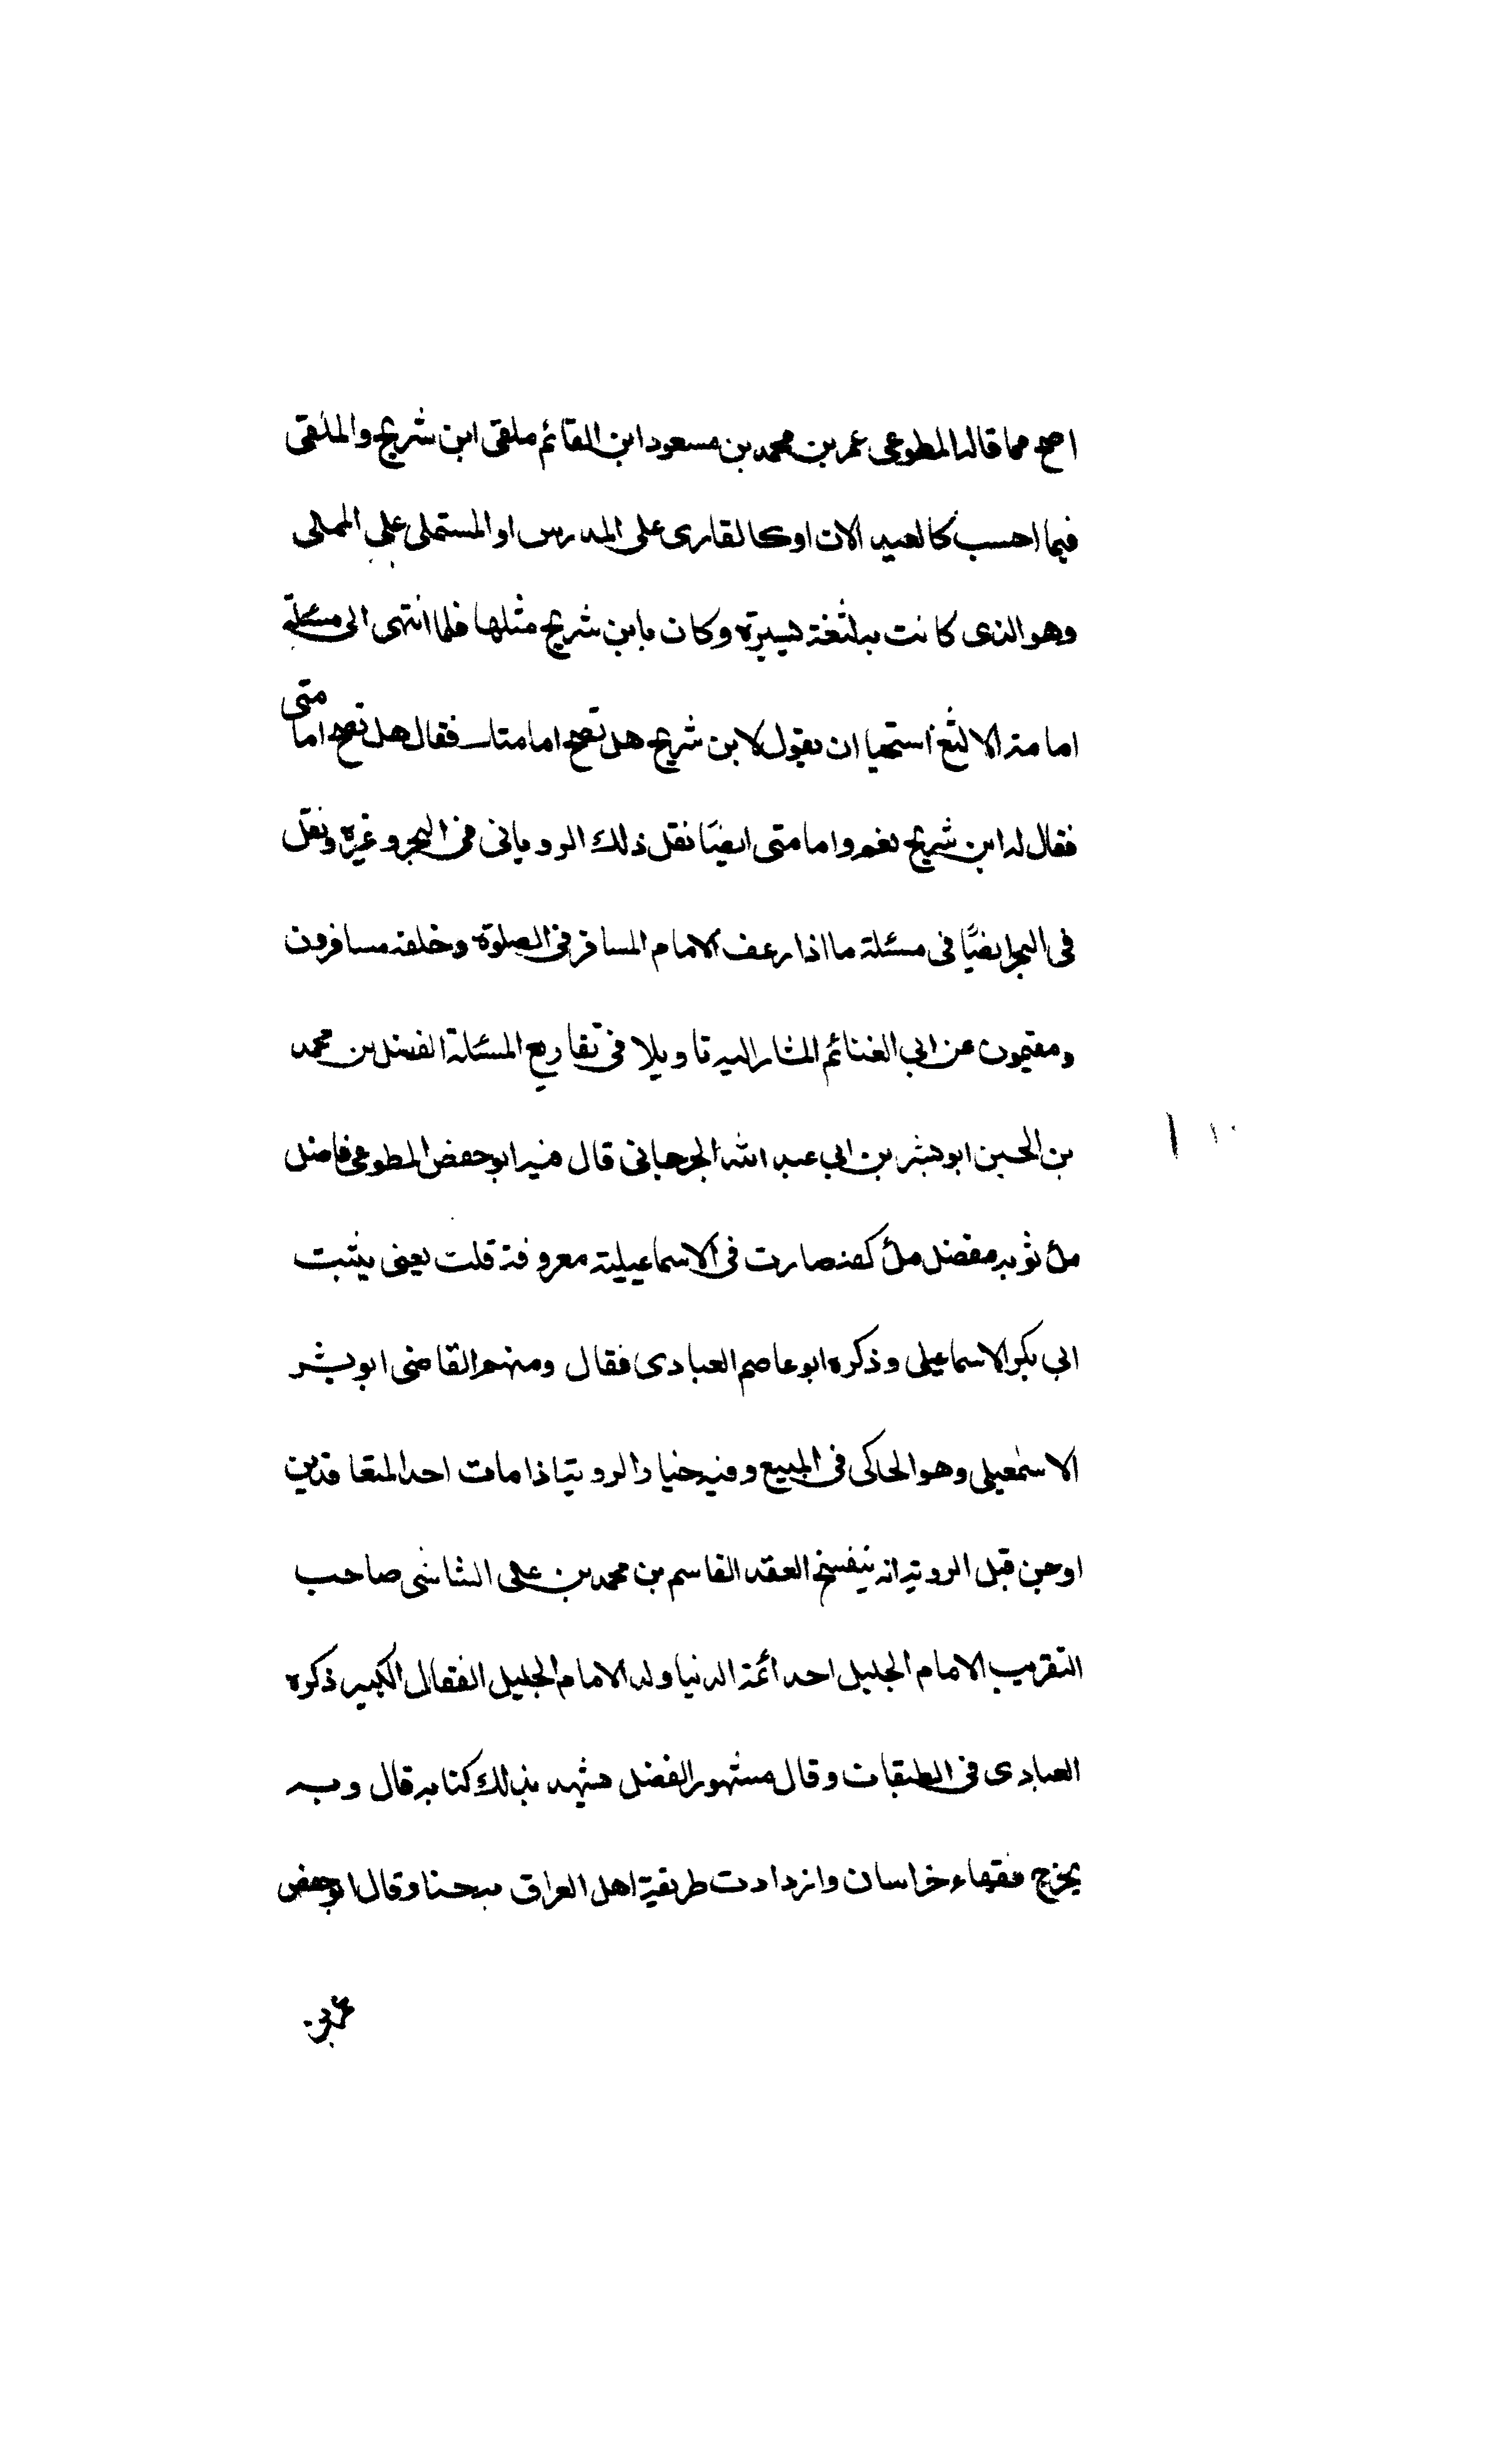 اصح مما قاله المطوعى عمر بن محمد بن مسعود ابن القائم ملقى ابن شريح والملقى
فيما احسب كالعيد الان او كالقارى على المدرس او المستملى على المملى
وهو الذى كانت به لثغة يسيرة وكان بابن شريح مثلها فلما انتهى الى مسئلة
امامة الالثغ استحيا ان يقول لابن شريح هل تصح امامتك فقال هل تصح اما متى
فقال له ابن شريح نعم وامامتى ايضًا نقل ذلك الرويانى فى البحر وغيره ونقل
فى البحر ايضًا فى مسئلة ما اذا رعف الامام المسافر فى الصلوة وخلفه مسافرون
ومقيمون عن ابى الغنائم المشار اليه تاويلا فى تفاريع المسئلة الفضل بن محمد
بن الحسين ابو بشر بن ابى عبد الله الجرجانى قال فيه ابو حفص المطوعى فاضل
ملأ ثوبه مفضل ملأ كفه صارت فى الاسماعيلية معروفة قلت يعنى بيت
ابى بكر الاسماعيلى وذكره ابو عاصم العبادى فقال ومنهم القاضى ابو بشر
الاسمعيلى وهو الحاكى فى المبيع وفيه خيار الروية اذا مات احد المتعاقدين
او جن قبل الروية انه ينفسخ العقد القاسم بن محمد بن على الشاشى صاحب
التقريب الامام الجليل احد ائمة الدنيا ولد الامام الجليل القفال الكبير ذكره
العبادى فى الطبقات وقال مشهور الفضل يشهد بذلك كتابه قال وبه
يخرج فقهاء خراسان وازدادت طريقة اهل العراق به حسنا وقال ابو حفص
عمر بن